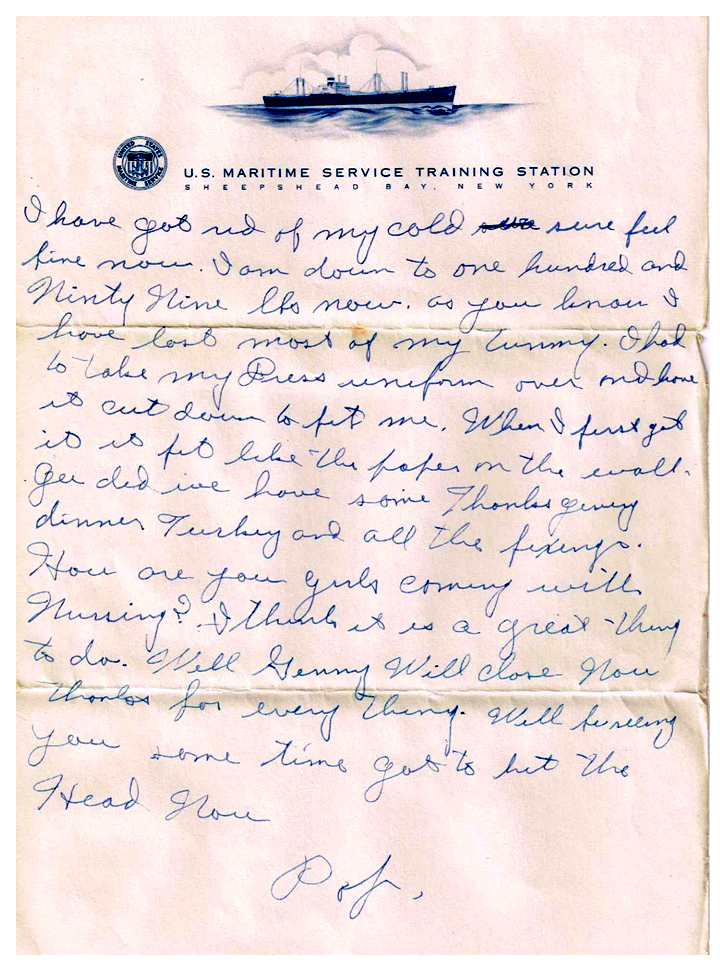 UNITED STATES
MARITIME SERVICE
U.S. MARITIME SERVICE TRAINING STATION
SHEEPSHEAD BAY, NEW YORK
I have got rid of my cold sure feel
fine now. I am down to one hundred and
Ninty Nine lbs now. as you know I
have lost most of my Tummy. I had
to take my Dress uniform over and have
it cut down to fit me. When I first got
it it fit like the paper on the wall.
Gee did we have some Thanksgiving
dinner Turkey and all the fixings.
How are you girls coming with
Nursing? I think it is a great thing
to do. Well Genny Will close Now
thanks for every thing. Will be seeing
you some time got to hit the
Head Now
Pop.